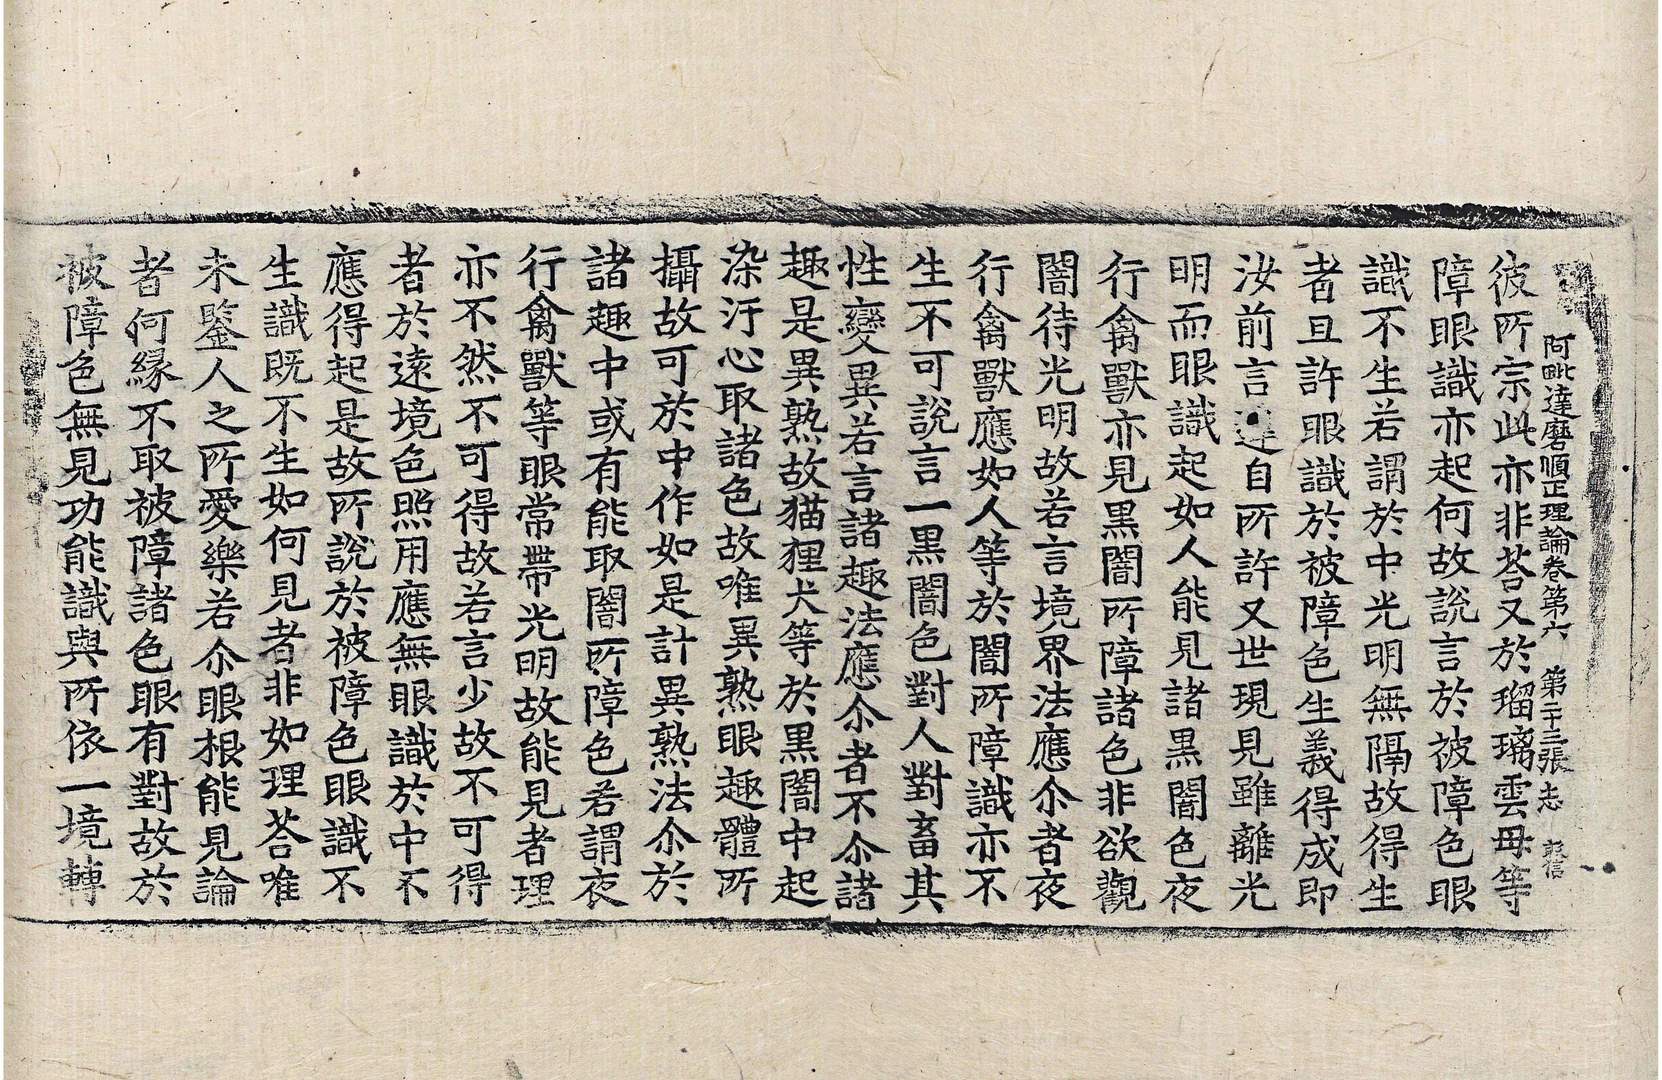 阿毗達磨順正理論卷第六　第二十三張　志　彭信
彼所宗此亦非荅又於瑠璃雲母等
障眼識亦起何故說言於被障色眼
識不生若謂於中光明無隔故得生
者且許眼識於被障色生義得成即
汝前言違自所許又世現見雖離光
明而眼識起如人能見諸黑闇色夜
行禽獸亦見黑闇所障諸色非欲觀
闇待光明故若言境界法應尒者夜
行禽獸應如人等於闇所障識亦不
生不可說言一黑闇色對人對畜其
性變異若言諸趣法應尒者不尒諸
趣是異熟故猫狸犬等於黑闇中起
染汙心取諸色故唯異熟眼趣體所
攝故可於中作如是計異熟法尒於
諸趣中或有能取闇所障色若謂夜
行禽獸等眼常帶光明故能見者理
亦不然不可得故若言少故不可得
者於遠境色照用應無眼識於中不
應得起是故所說於被障色眼識不
生識既不生如何見者非如理荅唯
未鑒人之所愛樂若尒眼根能見論
者何緣不取被障諸色眼有對故於
被障色無見功能識與所依一境轉